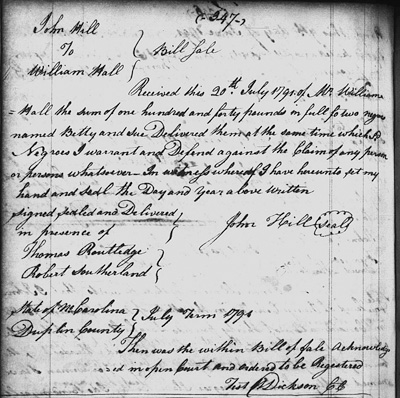 (247)
John Hill
To } Bill Sale
William Hall
Received this 20th July 1791 of Mr William
= Hall the sum of one hundred and forty pounds in full fo two negroes
named Betty and Sue Delivered them at the same time which Sd
Negroes I warrant and Defend against the Claim of any person
or persons whatsoever — In witness whereof I have hereunto set my
hand and seal the Day and Year above written
Signed Sealed and Delivered
in presence of } John Hill (Seal)
Thomas Routledge
Robert Southerland
State of N Carolina } July Term 1791
Duplin County
Then was the within Bill of Sale acknowledg
=ed in open Court and ordered to be Registered
Test Dickson CC